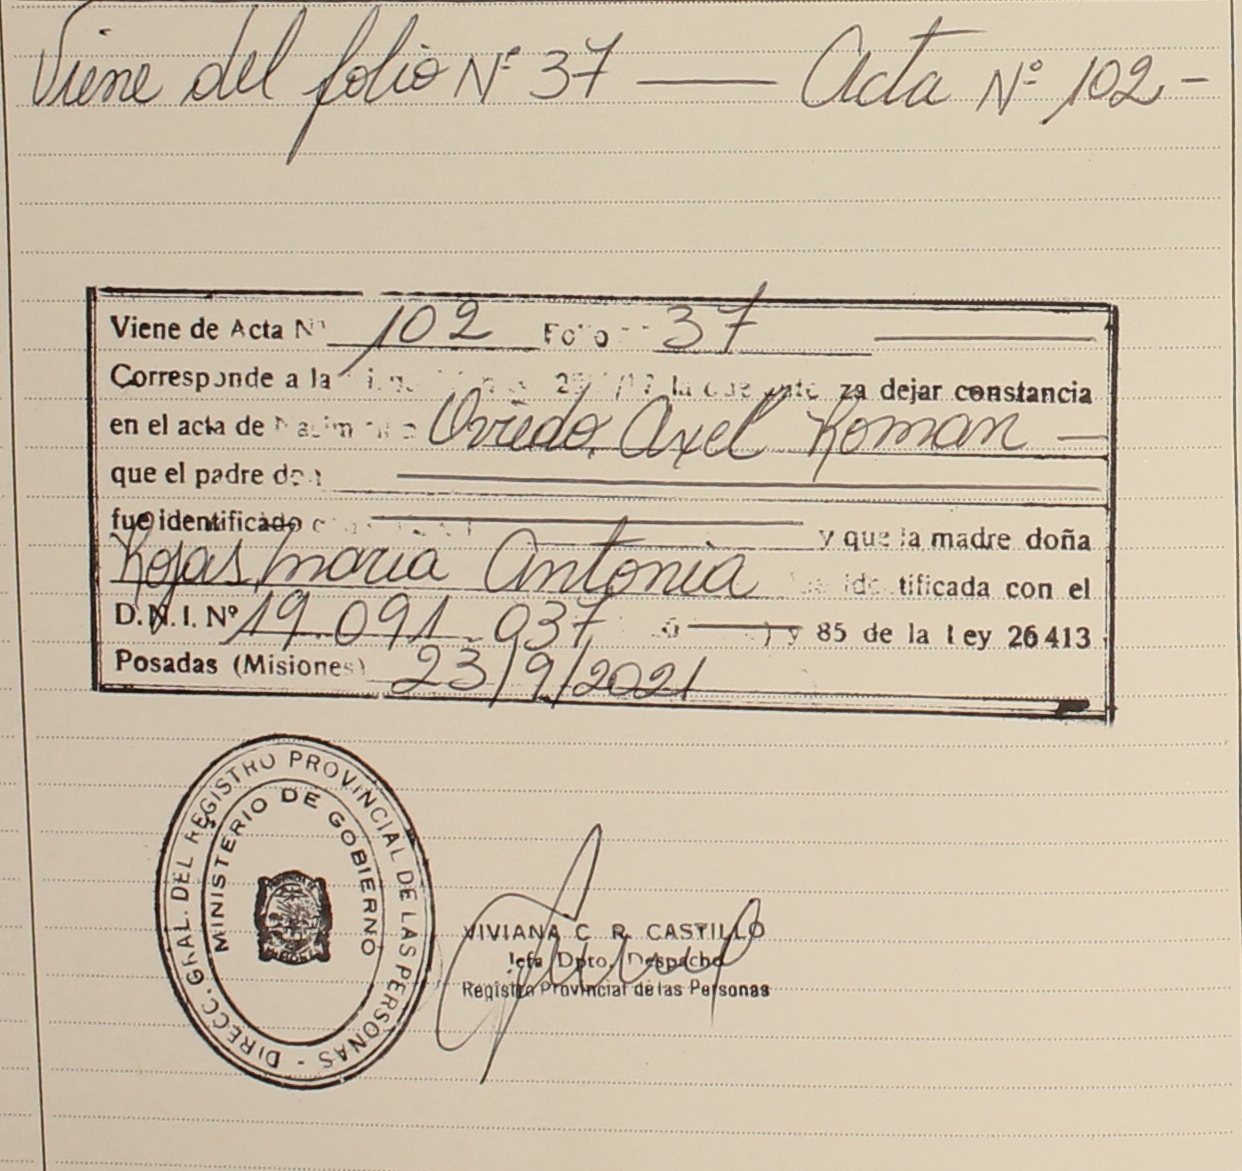 Viene del folio Nº 37 — Acta Nº 102 -
Viene de Acta Nº 102 Folio 37
Corresponde a la za dejar constancia
en el acta de Oviedo, Axel Roman —
que el padre don
fue identificado y que la madre doña
Rojas Maria Antonia identificada con el
D.N.I. Nº 19.091.937 y 85 de la Ley 26413
Posadas (Misiones) 23/9/2021
DIRECC. GRAL. DEL REGISTRO PROVINCIAL DE LAS PERSONAS -
MINISTERIO DE GOBIERNO
VIVIANA C R. CASTILLO
Jefa Dpto. Despacho
Registro Provincial de las Personas